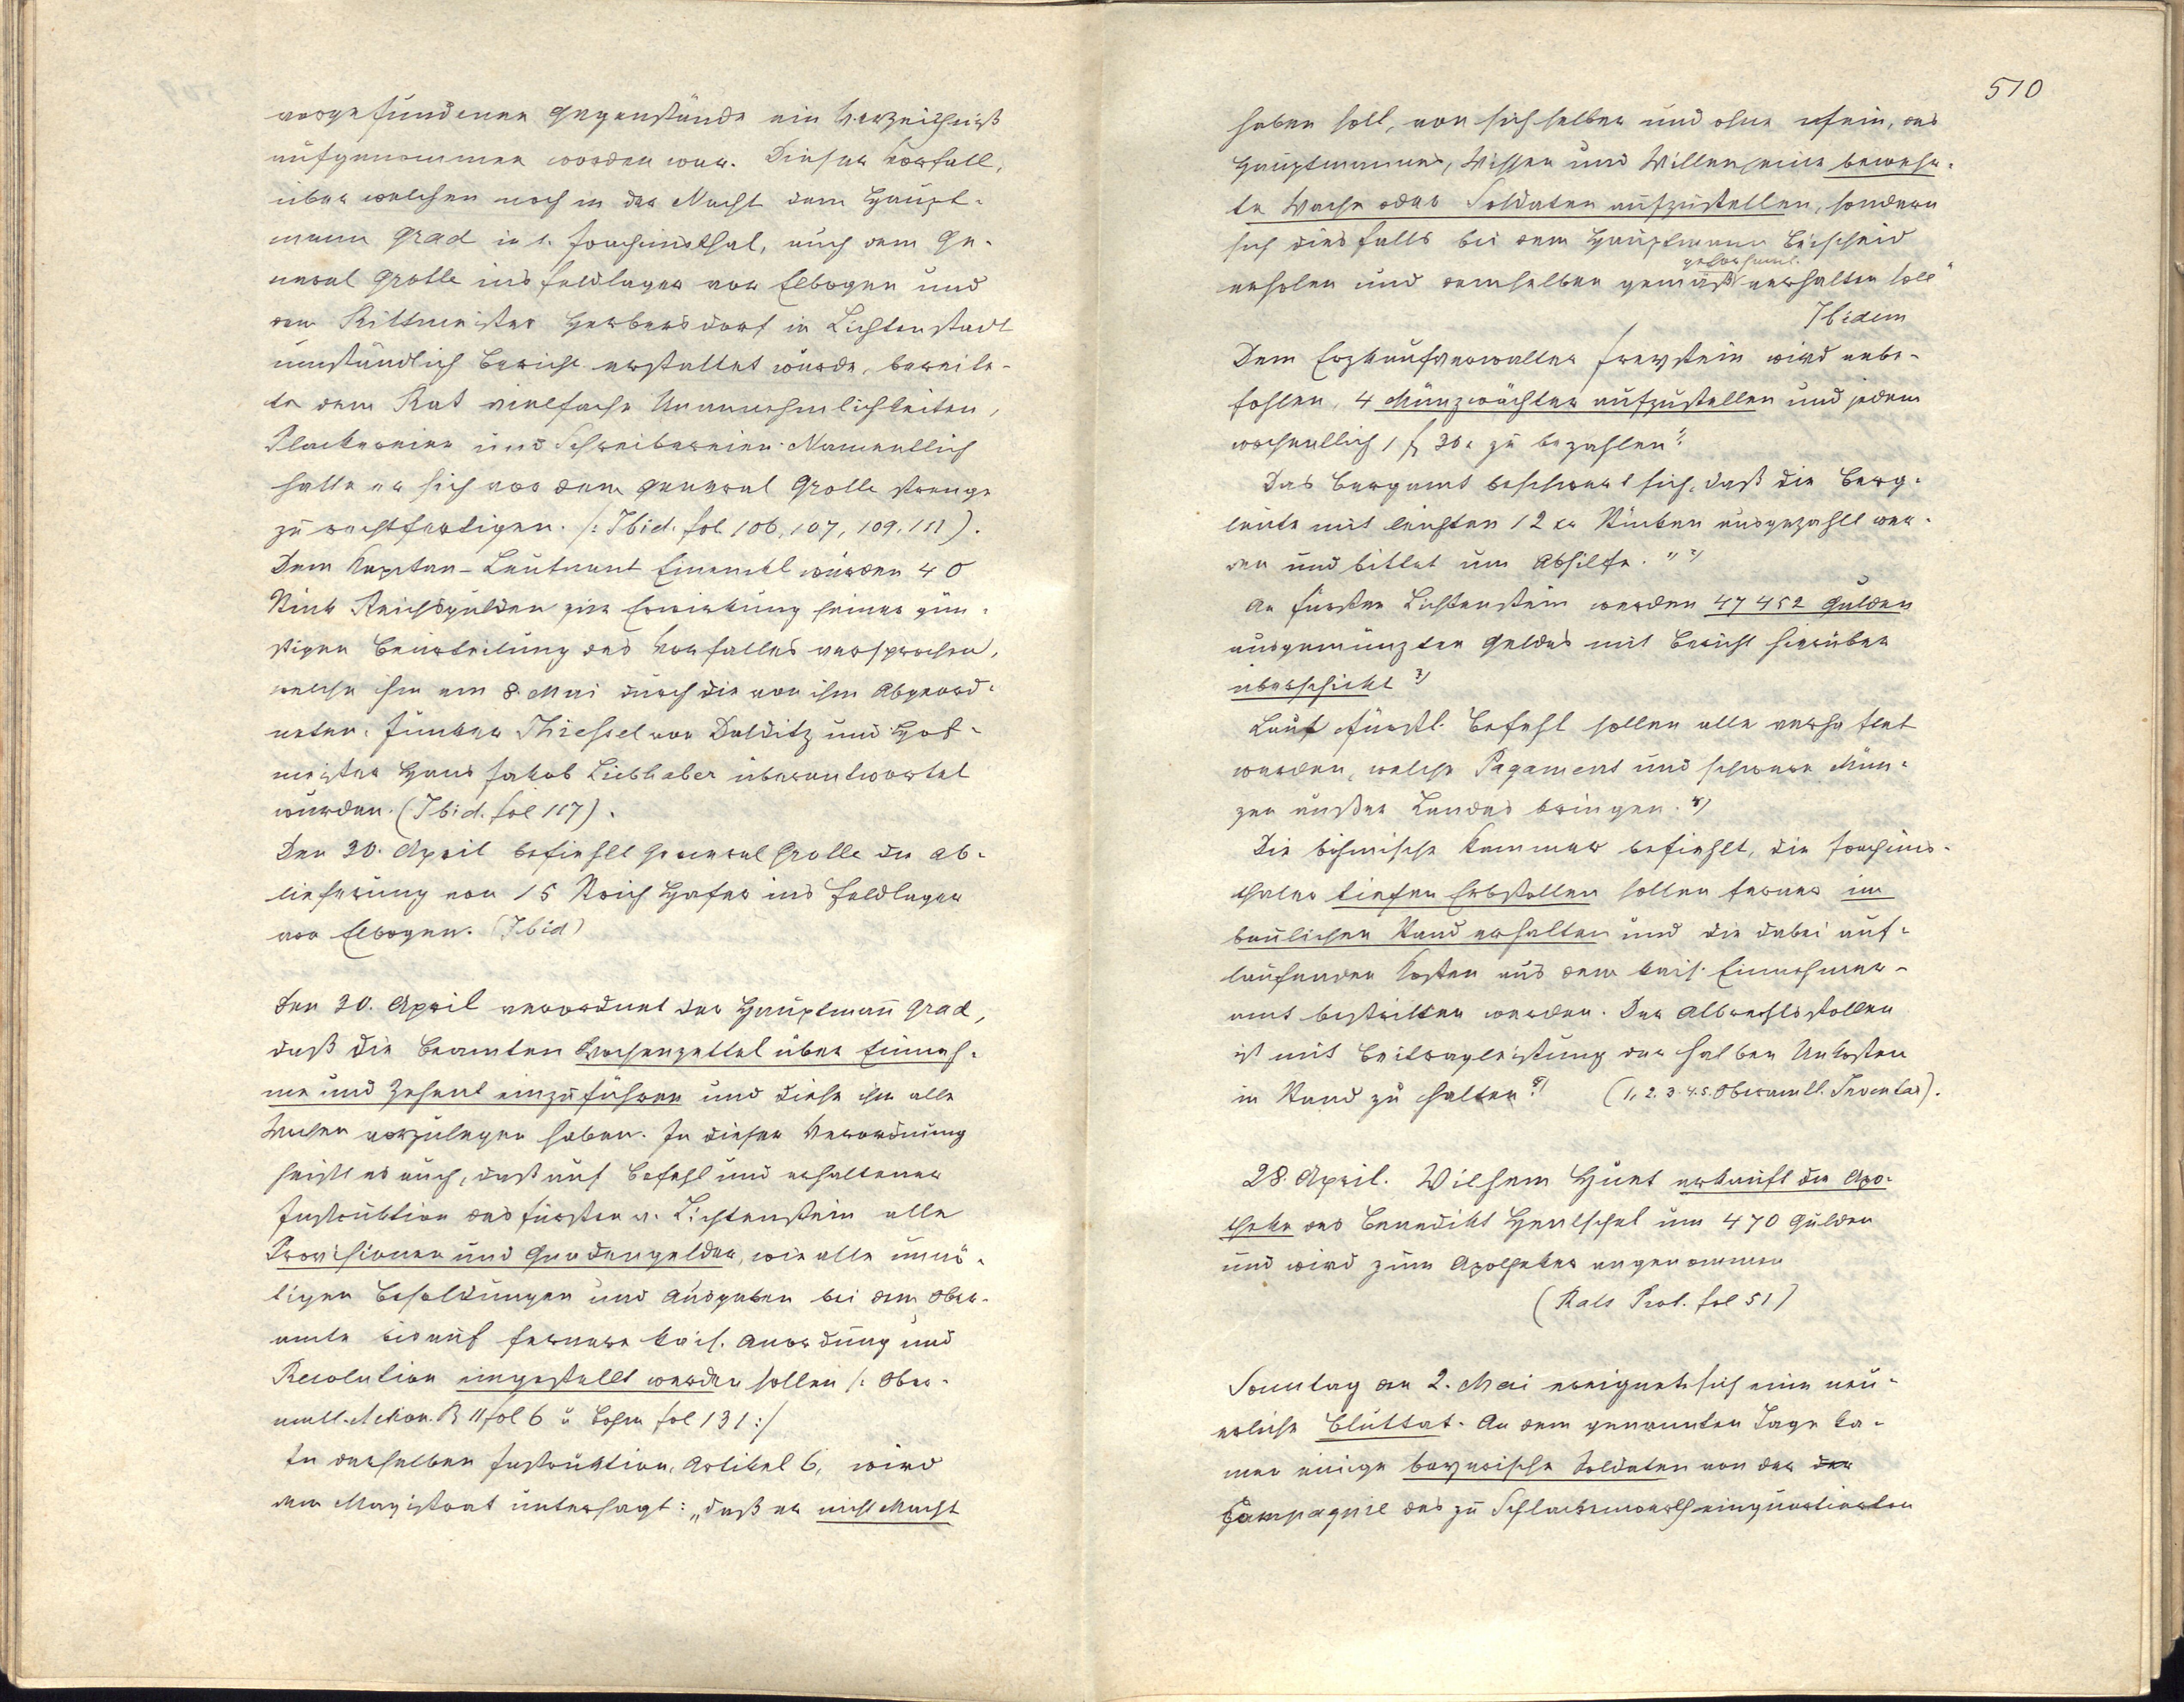 vorgefundenen Gegenstände ein Verzeichniß
aufgenommen worden war. Dieser Vorfall,
über welchen noch in der Nacht dem Haupt-
mann Grad in s. Joachimsthal, auch dem Ge-
neral Grotte ins Feldlager vor Elbogen und
dem Rittmeister Herbersdorf in Lichtenstadt
umständlich Bericht erstattet wurde, bereite-
te dem Rat vielfache Unannehmlichkeiten,
Plackereien und Schreibereien. Namentlich
hatte er sich vor dem General Grotte strenge
zu rechtfertigen. /: Ibid. fol. 106, 107, 109, 111).
Dem Kapitan-Leutnant wurden 40
Stück Reichsgulden zur Erwirkung seiner gün-
stigen Beurteilung des Vorfalles versprochen,
welche ihm am 8. Mai durch die von ihm Abgeord-
neten, Junker Thiesel von Dalditz und Hof-
meister Hans Jakob Liebhaber überantwortet
wurden. (Ibid. fol 117).
Den 30. April befiehlt General Grotte die Ab-
lieferung von 15 Strich Hafer ins Feldlager
vor Elbogen. (Ibid)
Den 20. April verordnet der Hauptmañ Grad,
daß die Beamten Wochenzettel über Einnah-
me und Zehent einzuführen und diese ihm alle
Wochen vorzulegen haben. In dieser Verordnung
heißt es auch, daß auf Befehl und erhaltener
Instruktion des Fürsten v. Lichtenstein alle
Provisionen und Gnadengelder, wie alle unnö-
tigen Besoldungen und Ausgaben bei dem Ober-
amte bis auf fernere kais. Anordnung und
Resolution eingestellt werden sollen /: Ober-
amtl. Aktion. B II fol 6 u fol 131 :/
In derselben Instruktion, Artikel 6, wird
dem Magistrat untersagt: „daß er nicht Macht
510
haben soll, von sich selber und ohne sein, des
Hauptmannes, Wissen und Willen eine bewehr-
te Wache oder Soldaten aufzustellen, sondern
sich dies falls bei dem Hauptmann Bescheid
gehorsaml.
erholen und demselben gemäß verhalten soll"
Ibidem
Dem Erzkaufverwalter Freystein wird anbe-
fohlen, 4 Münzwächter aufzustellen und jedem
wochentlich 1 fl 30 x zu bezahlen 1)
Das Bergamt beschwert sich, daß die Berg-
leute mit leichten 12 xr Stücken ausgezahlt wer-
den und bittet um Abhilfe." 2)
An Fürsten Lichtenstein werden 47452 Gulden
ausgemünzten Geldes mit Bericht hierüber
überschickt 3)
Laut fürstl. Befehl sollen alle verhaftet
werden, welche Pagament und schwere Mün-
zen außer Landes bringen. 4)
Die böhmische Kammer befiehlt, die Joachims-
thaler tiefen Erbstollen sollen ferner im
baulichen Stand erhalten und die dabei auf-
laufenden Kosten aus dem kais. Einnehmer-
amt bestritten werden. Der Albrechtsstollen
ist mit Beitragleistung der halben Unkosten
in Stand zu halten 5) (1, 2. 3. 4. 5. Oberamtl. Inventar).
28. April. Wilhem Hüet erkauft die Apo-
theke des Benedikt Hentschel um 470 Gulden
und wird zum Apotheker angenommen
(Rats Prot. fol 51)
Sonntag den 2. Mai ereignete sich eine neu-
erliche Bluttat. An dem genannten Tage ka-
men einige bayerische Soldaten von der der
Compagnie des zu Schlackenwerth einquartierten